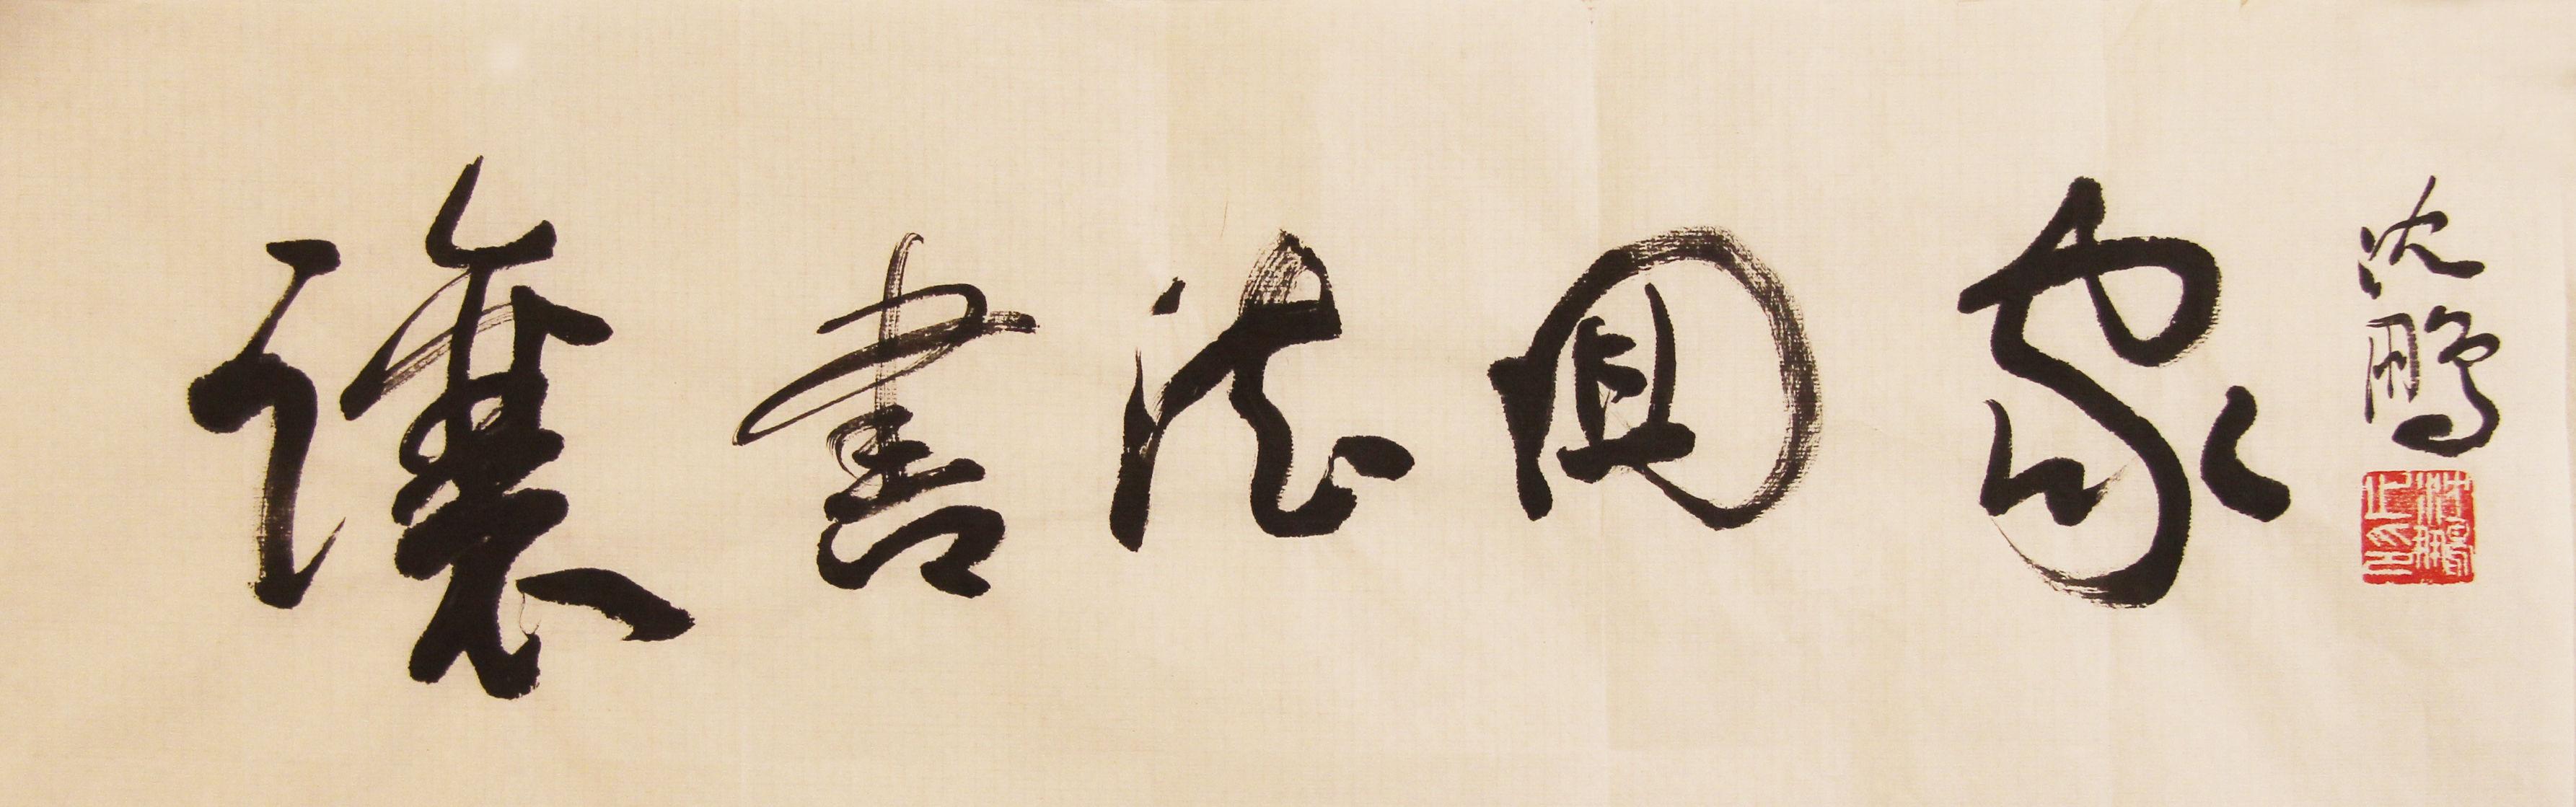 讓書法回家
沈鵬
沈鵬之印